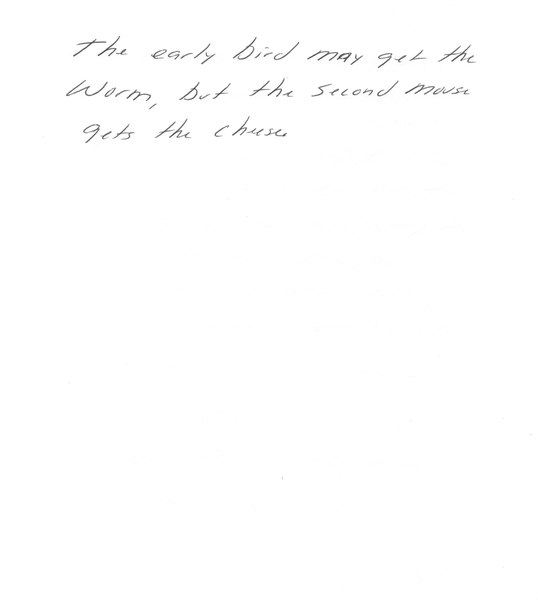 The early bird may get the
Worm, but the second mouse
gets the cheese